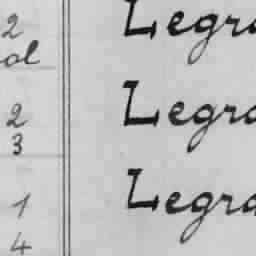 2 Legra
ol
2 Legra
3
1 Legra
4